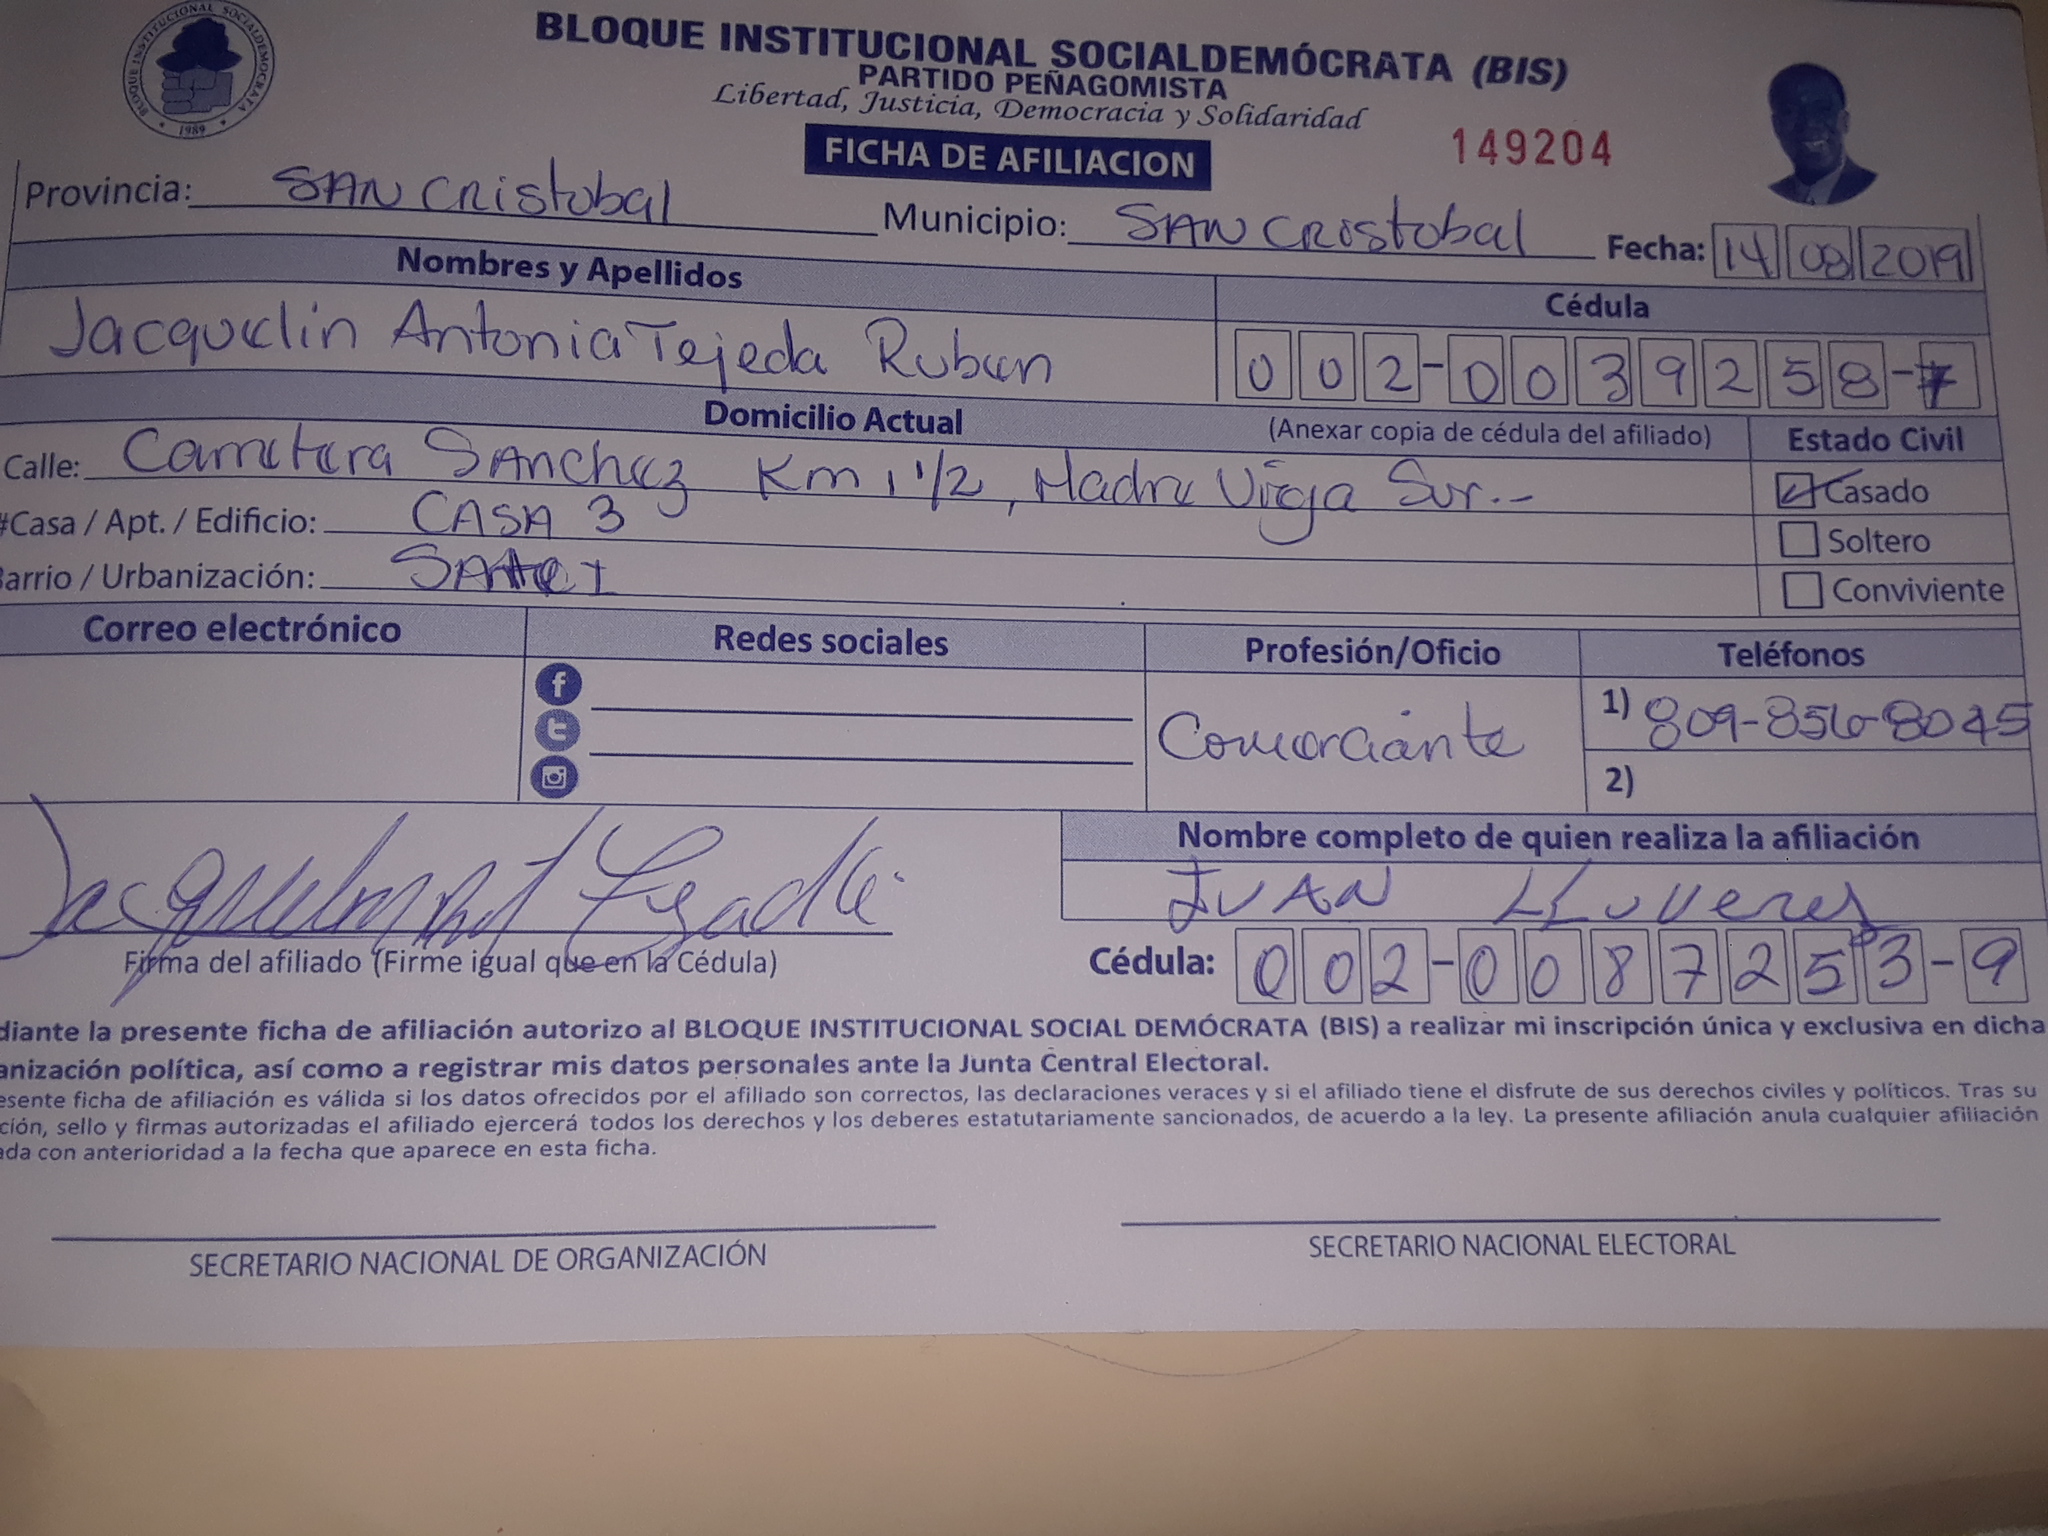 BLOQUE INSTITUCIONAL SOCIALDEMOCRATA
1989
BLOQUE INSTITUCIONAL SOCIALDEMÓCRATA (BIS)
PARTIDO PEÑAGOMISTA
Libertad, Justicia, Democracia y Solidaridad
FICHA DE AFILIACION
149204
Provincia: SAN Cristobal Municipio: SAN Cristobal Fecha: 14 08 2019
Nombres y Apellidos Cédula
Jacquelin Antonia Tejeda Ruben 002-0039258-7
Domicilio Actual (Anexar copia de cédula del afiliado) Estado Civil
Calle: Carretera Sanchez Km 1 1/2, Madre Vieja Sur.- Casado
#Casa / Apt. / Edificio: CASA 3 Soltero
Barrio / Urbanización: Conviviente
Correo electrónico Redes sociales Profesión/Oficio Teléfonos
f
t
Comerciante
1) 809-856-8045
2)
Nombre completo de quien realiza la afiliación
JUAN LLuveres
Firma del afiliado (Firme igual que en la Cédula) Cédula: 002-0087253-9
diante la presente ficha de afiliación autorizo al BLOQUE INSTITUCIONAL SOCIAL DEMÓCRATA (BIS) a realizar mi inscripción única y exclusiva en dicha
anización política, así como a registrar mis datos personales ante la Junta Central Electoral.
esente ficha de afiliación es válida si los datos ofrecidos por el afiliado son correctos, las declaraciones veraces y si el afiliado tiene el disfrute de sus derechos civiles y políticos. Tras su
ción, sello y firmas autorizadas el afiliado ejercerá todos los derechos y los deberes estatutariamente sancionados, de acuerdo a la ley. La presente afiliación anula cualquier afiliación
ada con anterioridad a la fecha que aparece en esta ficha.
SECRETARIO NACIONAL DE ORGANIZACIÓN SECRETARIO NACIONAL ELECTORAL